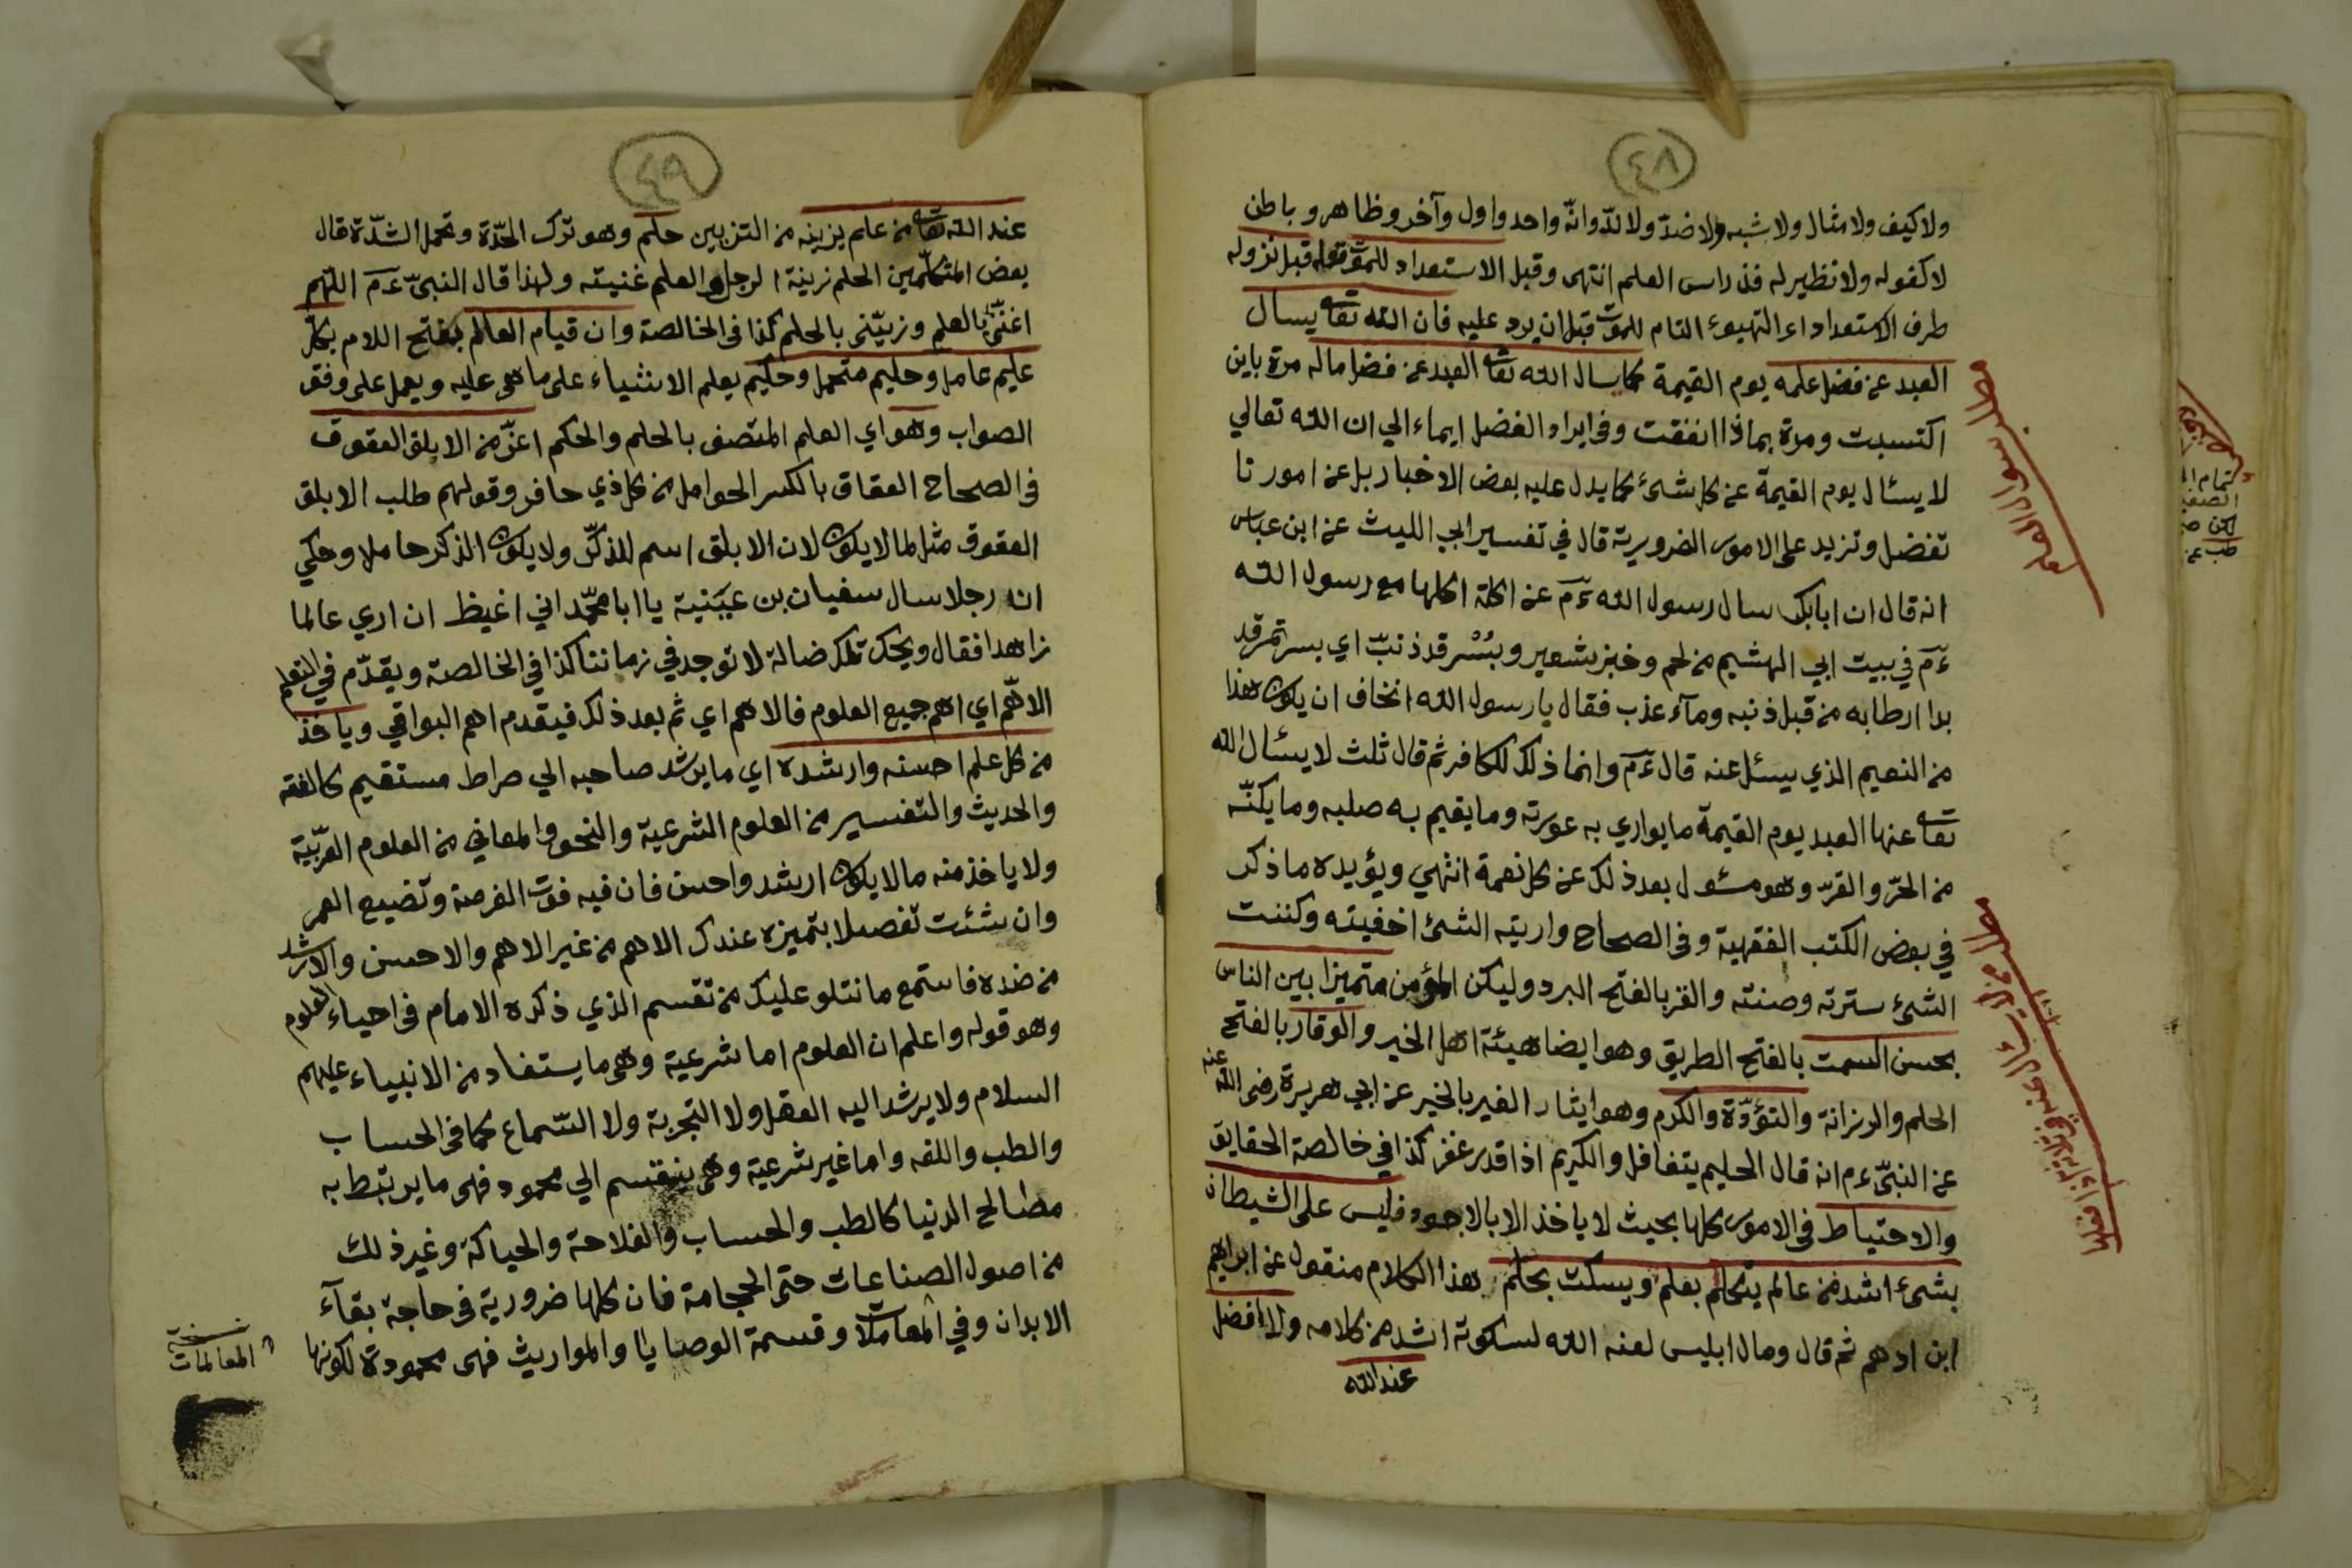 ٤٨
ولا كيف ولا مثال ولا شبه ولا ضدّ ولا ندّ وانّه واحد واول وآخر وظاهر وباطن
لا كفوله ولا نظير له فذ راس العلم انتهى وقبل الاستعداد للموت قبل نزوله
طرف الاستعداد اء التهيوء التام للموت قبل ان يرد عليه فان الله تعا يسال
العبد عن فضل علمه يوم القيمة كما يسال الله تعا العبد عن فضل ماله مرة باين
اكتسبت ومرة بماذا انفقت وفي ايراد الفضل ايماء الي ان الله تعالي
لا يسئال يوم القيمة عن كل شئ كما يدل عليه بعض الاخبار بل عن امور تا
تفضل وتزيد على الامور الضرورية قال في تفسير ابي الليث عن ابن عباس
انه قال ان ابابكر سال رسول الله ءم عن اكلة اكلها مع رسول الله
ءم في بيت ابي الهشيم من لحم وخبز شعير وبُسْر قد ذنبّ اي بسر تمر قد
بدا ارطابه من قبل ذنبه ومآء عذب فقال يا رسول الله انخاف ان يكون هذا
من النعيم الذي يسئل عنه قال ءم وانما ذلك للكافر ثم قال ثلث لا يسئال الله
تعا عنها العبد يوم القيمة ما يواري به عورته وما يقيم به صلبه وما يكنّه
من الحرّ والقرّ وهو مسئول بعد ذلك عن كل نعمة انتهي ويؤيده ما ذكر
في بعض الكتب الفقهية وفي الصحاح واريته الشئ اخفيته وكننت
الشئ سترته وصنته والقر بالفتح البرد وليكن المؤمن متميزا بين الناس
بحسن السمت بالفتح الطريق وهو ايضا هيئة اهل الخير والوقار بالفتح
الحلم والرزانة والتؤدّة والكرم وهو ايثار الغير بالخير عن ابي هريرة رضى الله عنه
عن النبيّ ءم انه قال الحليم يتغافل والكريم اذا قدر غفر كذا في خالصة الحقايق
والاحتياط في الامور كلها بحيث لا ياخذ الا بالاجود فليس على الشيطان
بشئ اشد من عالم يتكلم بعلم ويسكت بحلم هذا الكلام منقول عن ابراهيم
ابن ادهم ثم قال ومال ابليس لعنه الله لسكوته اشد من كلامه والافضل
عند الله
مطلب سوال العلم
٤٩
عند الله تعا من علم يزينه من التزيين حلم وهو ترك الحدّة وتحمل الشدّة قال
بعض المتكلّمين الحلم زينة الرجل والعلم غنيته ولهذا قال النبيّ ءم اللهم
اغننى بالعلم وزيّنى بالحلم كذا في الخالصة وان قيام العالم بفتح اللام بكل
عليم عامل وحليم متحمل وحكيم يعلم الاشياء على ما هى عليه ويعمل على وفق
الصواب وهو اي العلم المتصف بالحلم والحكم اعزّ من الابلق العقوق
في الصحاح العقاق بالكسر الحوامل من كل ذي حافر وقولهم طلب الابلق
العقوق مثل لما لا يكون لان الابلق اسم للذكّر ولا يكون الذكر حاملا وحكي
انه رجلا سال سفيان بن عيَينة يا ابا محمّد اني اغيظ ان اري عالما
زاهدا فقال ويحك تلك ضالة لا توجد في زماننا كذا في الخالصة ويقدّم في التعلم
الاهّم اي اهم جميع العلوم فالاهم اي ثم بعد ذلك فيقدم اهم البواقي وياخذ
من كل علم احسنه وارشده اي ما يرشد صاحبه الي صراط مستقيم كالفقه
والحديث والتفسير من العلوم الشرعية والنحو والمعاني من العلوم العربّية
ولا ياخذ منه ما لا يكون ارشد واحسن فان فيه فوت الفرصة وتضيع العمر
وان شئت تفصيلا بتميزه عندك الاهم من غير الاهم والاحسن والارشد
من ضده فاستمع ما نتلو عليك من تقسم الذي ذكره الامام في احياء العلوم
وهو قوله واعلم ان العلوم اما شرعية وهى ما يستفاد من الانبياء عليهم
السلام ولا يرشد اليه العقل ولا التجربة ولا السّماع كما في الحساب
والطب واللقه واما غير شرعية وهى ينقسم الي محمود فهى ما يرتبط به
مصالح الدنيا كالطب والحساب والفلاحة والحياكة وغير ذلك
من اصول الصناعات حتى الحجامة فان كلها ضرورية في حاجة بقآء
الابدان وفي المعاملات وقسمة الوصايا والمواريث فهى محمودة لكونها
نسخه
المعاملات